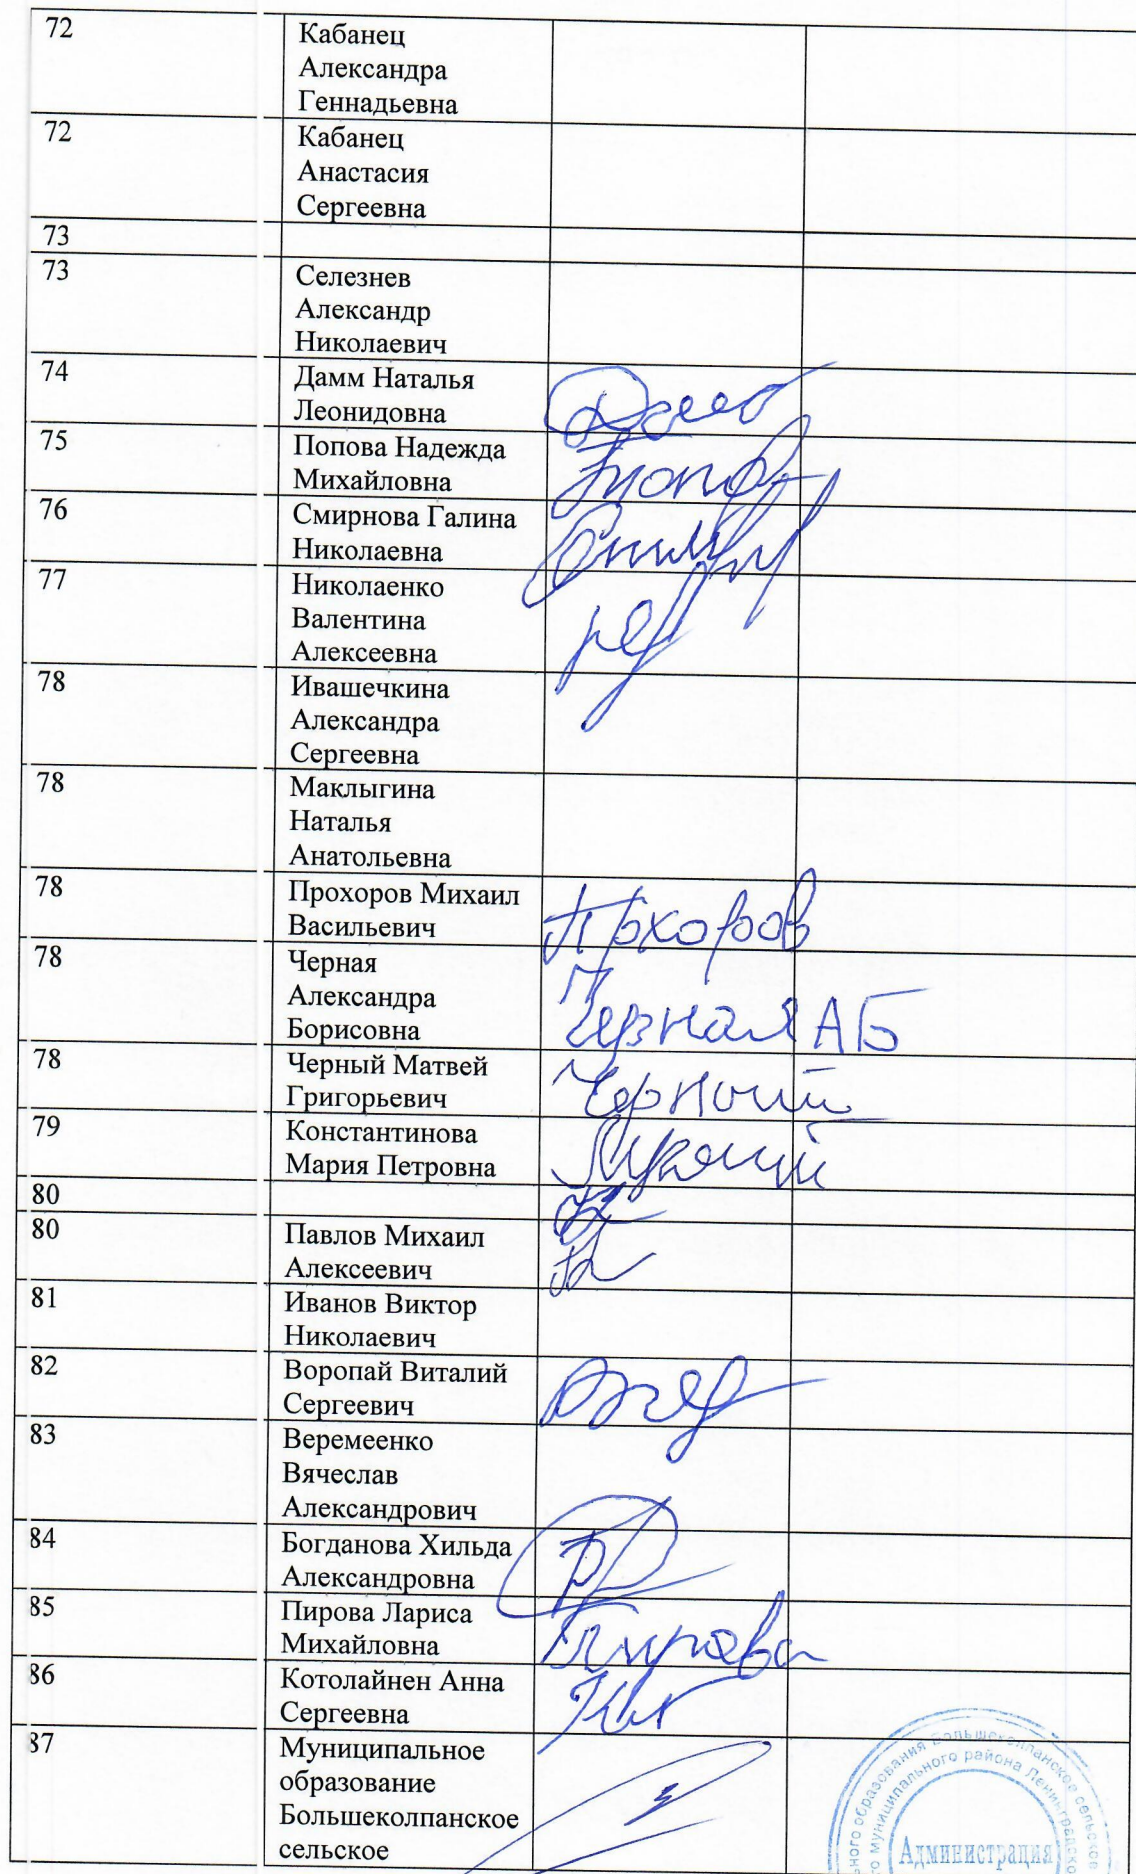 72 Кабанец
Александра
Геннадьевна
72 Кабанец
Анастасия
Сергеевна
73
73 Селезнев
Александр
Николаевич
74 Дамм Наталья
Леонидовна
75 Попова Надежда
Михайловна
76 Смирнова Галина
Николаевна
77 Николаенко
Валентина
Алексеевна
78 Ивашечкина
Александра
Сергеевна
78 Маклыгина
Наталья
Анатольевна
78 Прохоров Михаил
Васильевич
Прохоров
78 Черная
Александра
Борисовна
Черная АБ
78 Черный Матвей
Григорьевич
Черный
79 Константинова
Мария Петровна
80
80 Павлов Михаил
Алексеевич
81 Иванов Виктор
Николаевич
82 Воропай Виталий
Сергеевич
83 Веремеенко
Вячеслав
Александрович
84 Богданова Хильда
Александровна
85 Пирова Лариса
Михайловна
Пирова
86 Котолайнен Анна
Сергеевна
87 Муниципальное
образование
Большеколпанское
сельское
образования Большеколпанское сельское
муниципального района
Администрация